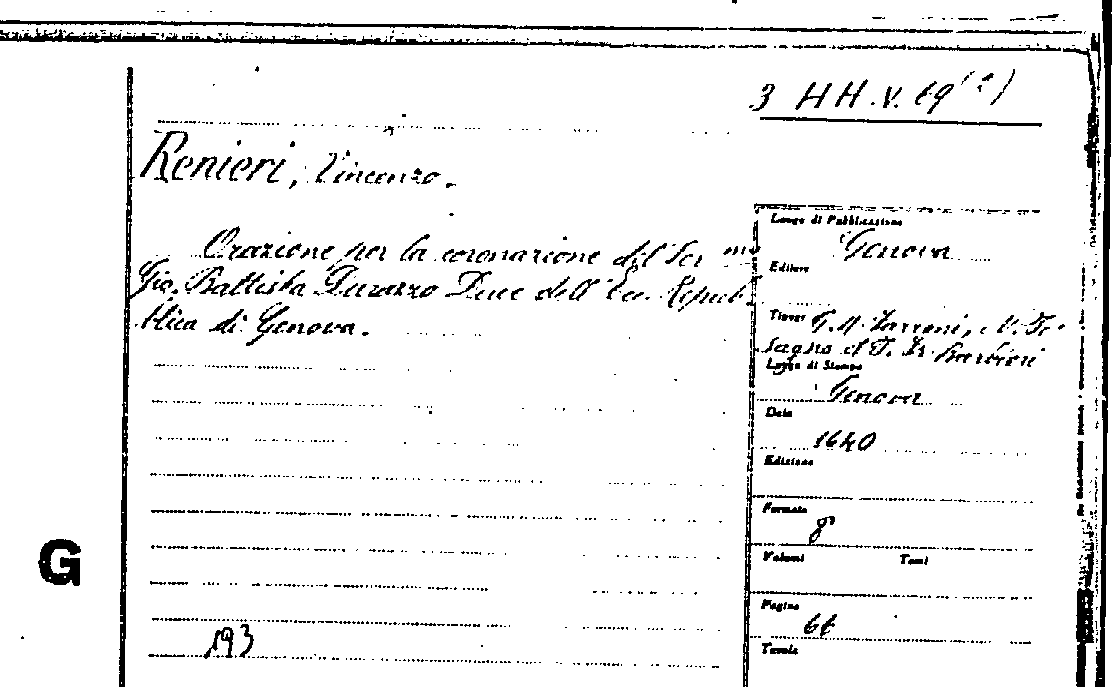 3 HH.V.69
Renieri, Vincenzo.
Orazione per la coronazione del Ser.mo
Gio. Battista Durazzo Duce dell'Ecc. Repub-
blica di Genova.
Luogo di Pubblicazione
Genova
Editore
Tipogr G. M. Farroni, N. Pe-
sagno e P. Fr. Barbieri
Luogo di Stampa
Genova
Data
1640
Edizione
Formato
8°
Volumi Tomi
Pagine
Tavole
G
193